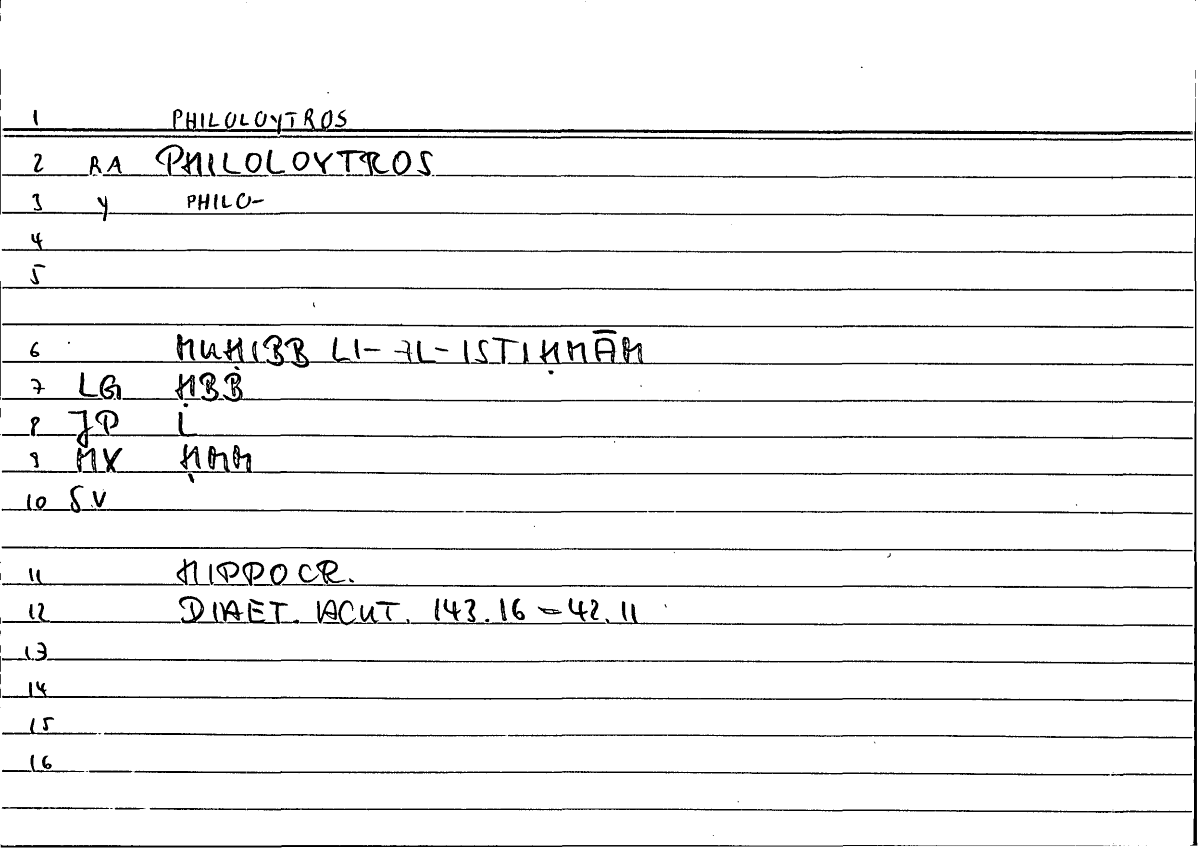 1 PHILOLOYTROS
2 RA PHILOLOYTROS
3 Y PHILO-
4
5
6 MUḤIBB LI- 7L- ISTIḤMĀM
7 LG ḤBB
8 JP L
9 MX ḤMM
10 SV
11 HIPPOCR.
12 DIAET. ACUT. 143.16 = 42.11
13
14
15
16